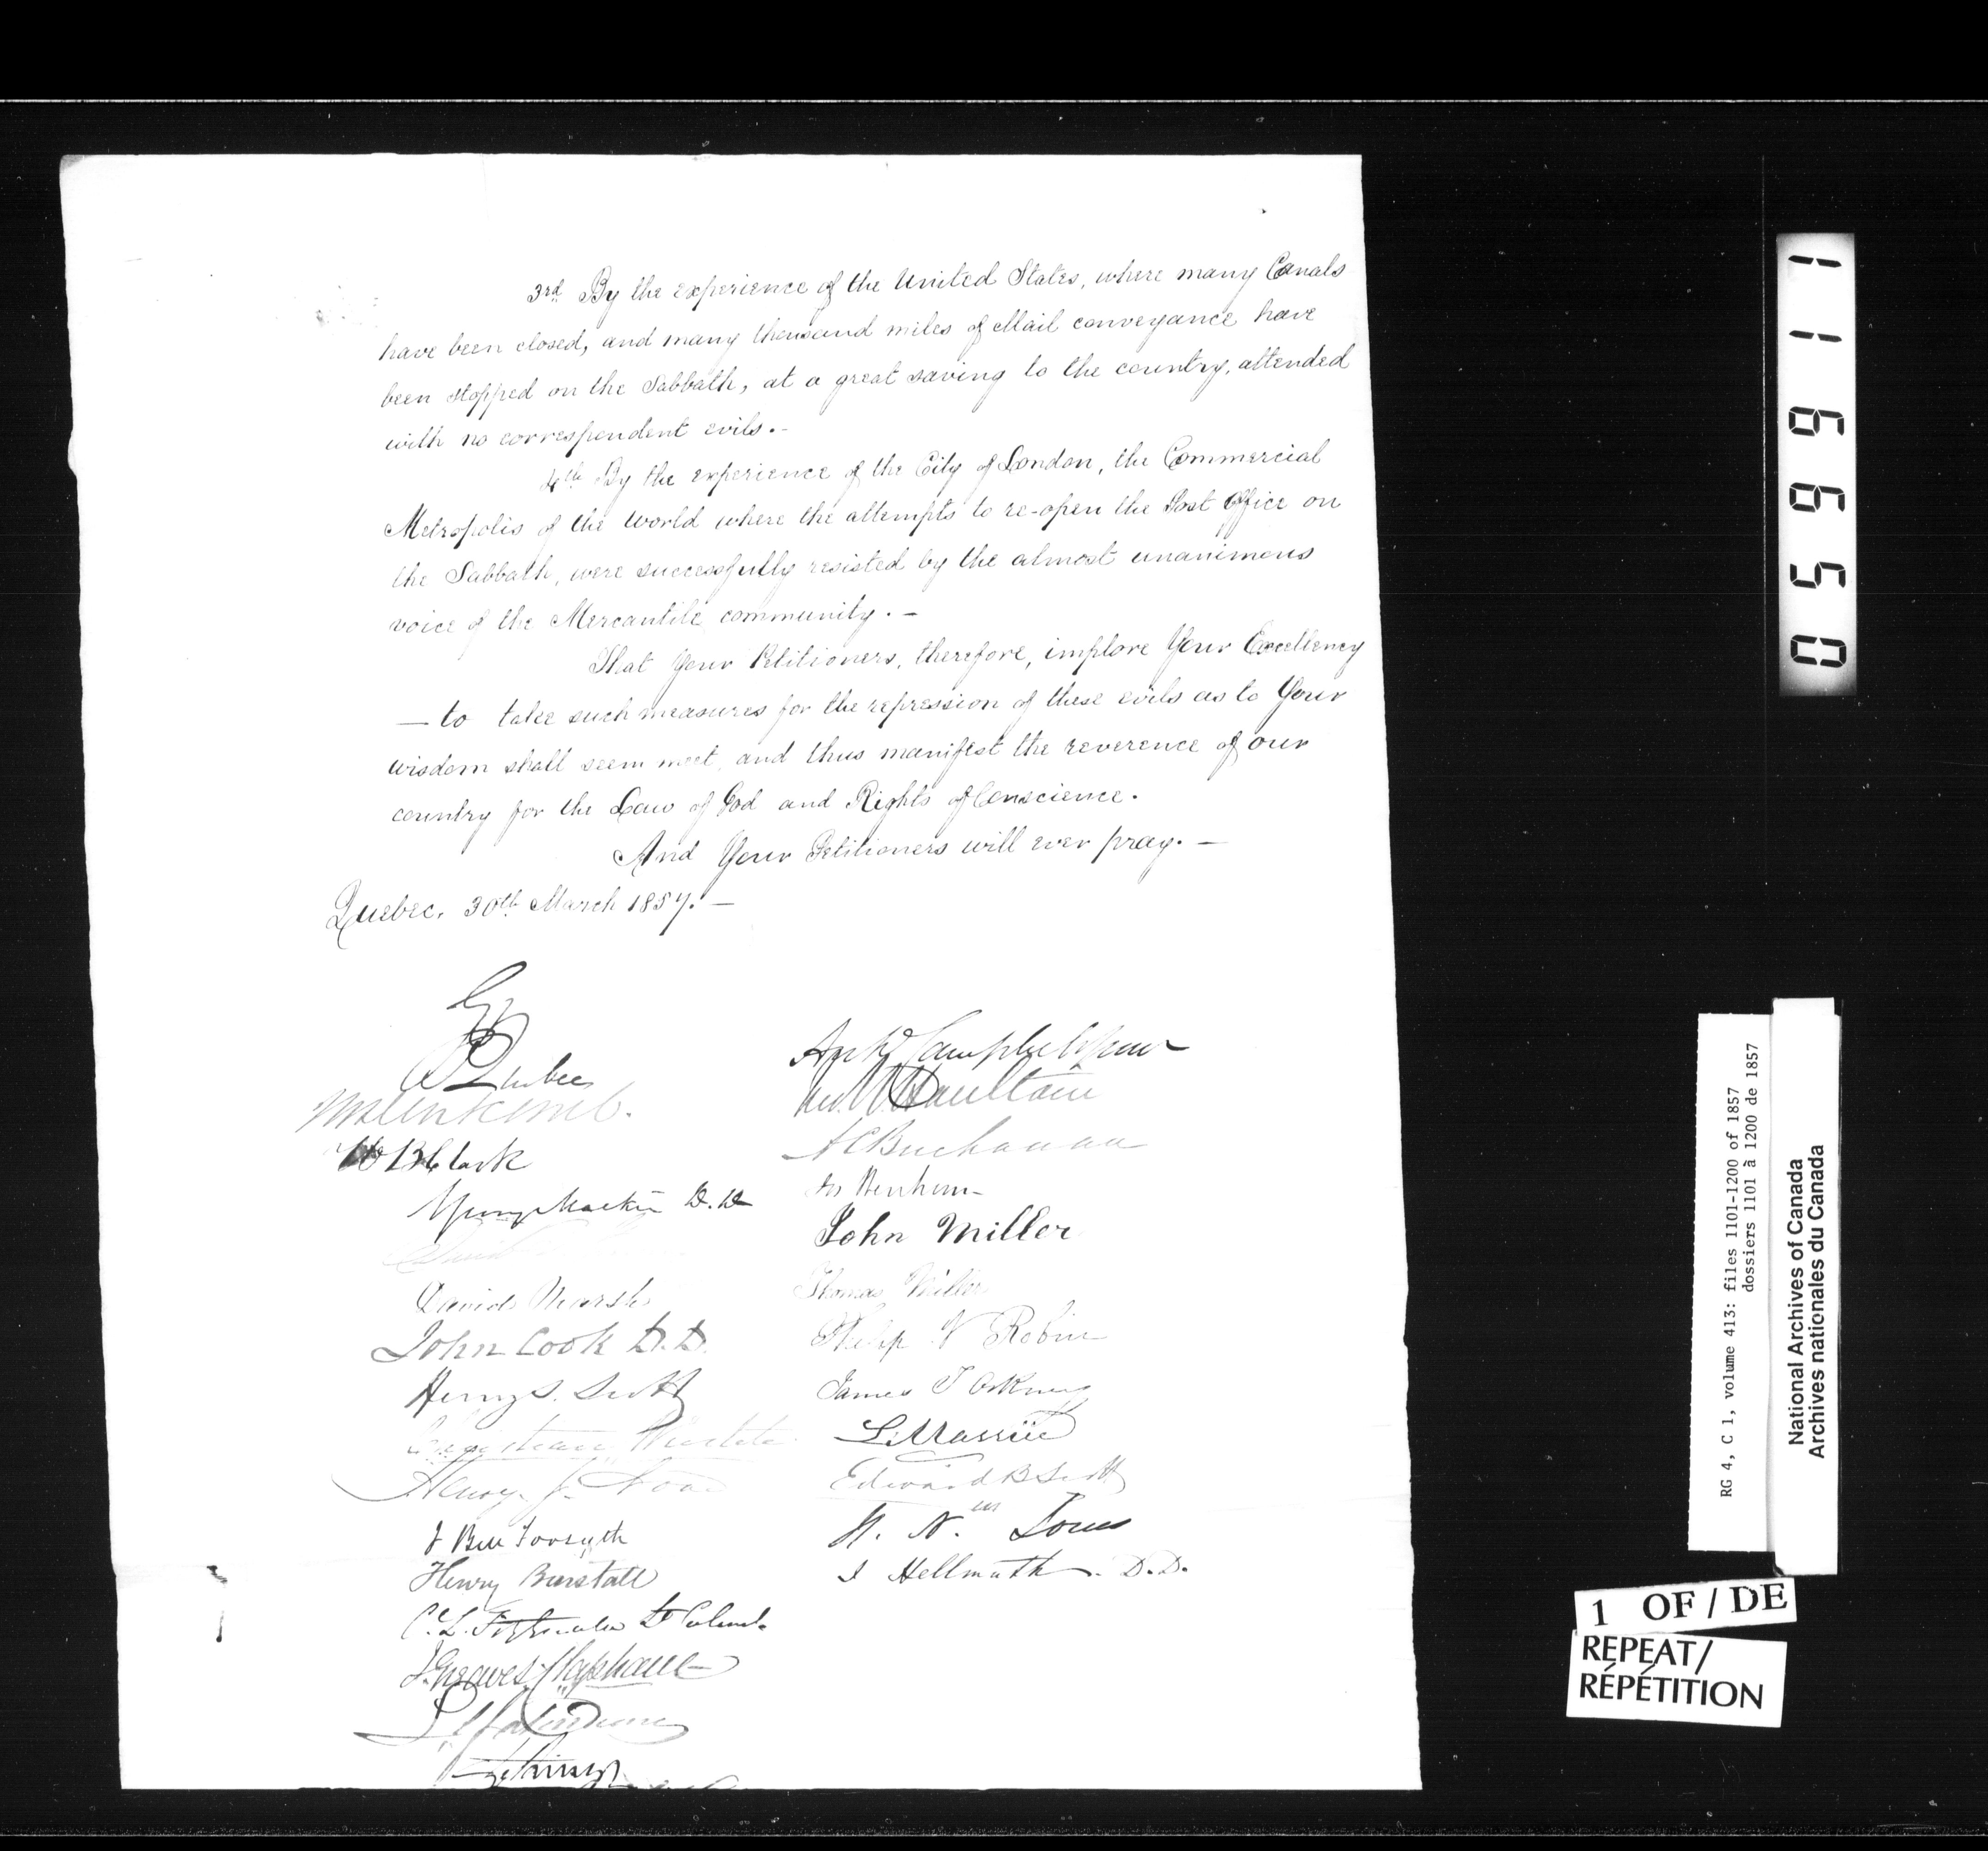 3rd By the experience of the United States, where many Canals
have been closed, and many thousand miles of Mail conveyance have
been stopped on the Sabbath, at a great saving to the country, attended
with no correspondent evils.-
4th By the experience of the City of London, the Commercial
Metropolis of the World where the attempts to re-open the Post Office on
the Sabbath, were successfully resisted by the almost unanimous
voice of the Mercantile community. -
That Your Petitioners, therefore, implore Your Excellency
- to take such measures for the repression of these evils as to Your
wisdom shall seem meet, and thus manifest the reverence of our
country for the Law of God and Rights of Conscience.
And Your Petitioners will ever pray. -
Quebec, 30th March 1857. -
Quebec
W B Clark
D.D
David Marsh
John Cook D.D.
Henry S. Scott
Henry J. Noad
J Bell Forsyth
Henry Burstall
Lt Colonel
J. Greaves Clapham
Campbell
A C Buchanan
John Miller
Thomas Miller
Philip V Robin
James T
L. Massüe
Edward B Scott
I Hellmuth. D.D.
0 5 6 6 1 1
RG 4, C 1, volume 413: files 1101-1200 of 1857
dossiers 1101 à 1200 de 1857
National Archives of Canada
Archives nationales du Canada
1 OF / DE
REPEAT/
RÉPÉTITION